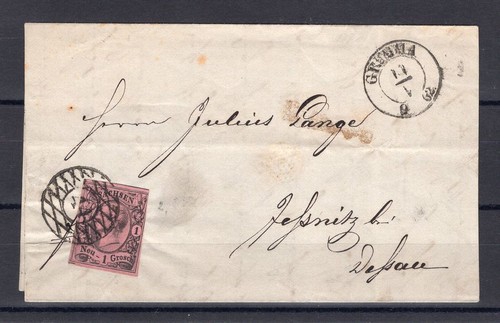 GRIMMA
11
V
9
62
Herrn Julius Lange
SACHSEN
1
Neu - 1 Grosch
Jessnitz bei
Dessau